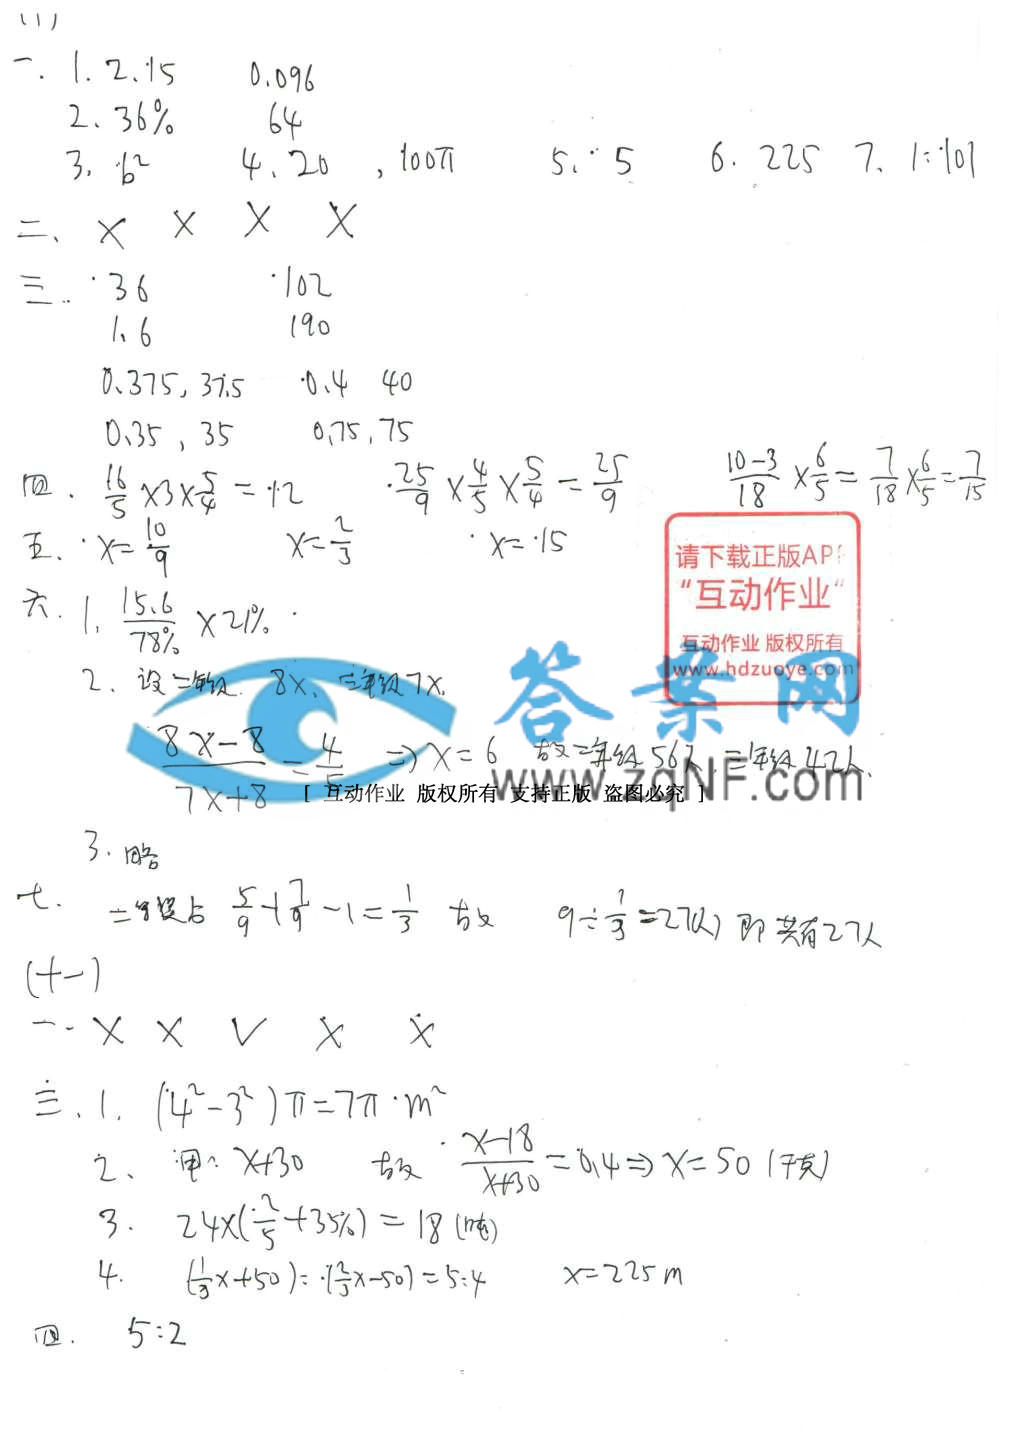 (1)
一. 1. 2.15 0.096
2. 36% 64
3. b² 4. 20 , 100π 5. 5 6. 225 7. 1:101
二、 X X X X
三. 36 102
1.6 190
0.375, 37.5 0.4 40
0.35, 35 0.75, 75
四. 16/5 ×3× 5/4 = 12 25/9 × 4/5 × 5/4 = 25/9 10-3/18 × 6/5 = 7/18 × 6/5 = 7/15
五. x= 10/9 x= 2/3 x=15
请下载正版APP
“互动作业”
互动作业 版权所有
www.hdzuoye.com
六. 1. 15.6/78% ×21%
2、设二年级 8x、三年级7x.
答案网
8x-8/7x+8 = 4/5 ⇒ x=6 故二年级56人 三年级42人.
www.zqNF.com
[ 互动作业 版权所有 支持正版 盗图必究 ]
3. 略
七. 5/9 + 7/9 -1= 1/3 故 9÷ 1/3 =27(人) 即共有27人
(十一)
一. X X V X X
三. 1. (4²-3²)π=7π m²
2、 甲: x+30 故 x-18/x+30 =0.4⇒ x=50 (千克)
3. 24×( 2/5 +35%) = 18 (吨)
4. ( 1/3 x+50):( 2/3 x-50)=5:4 x=225m
四. 5:2